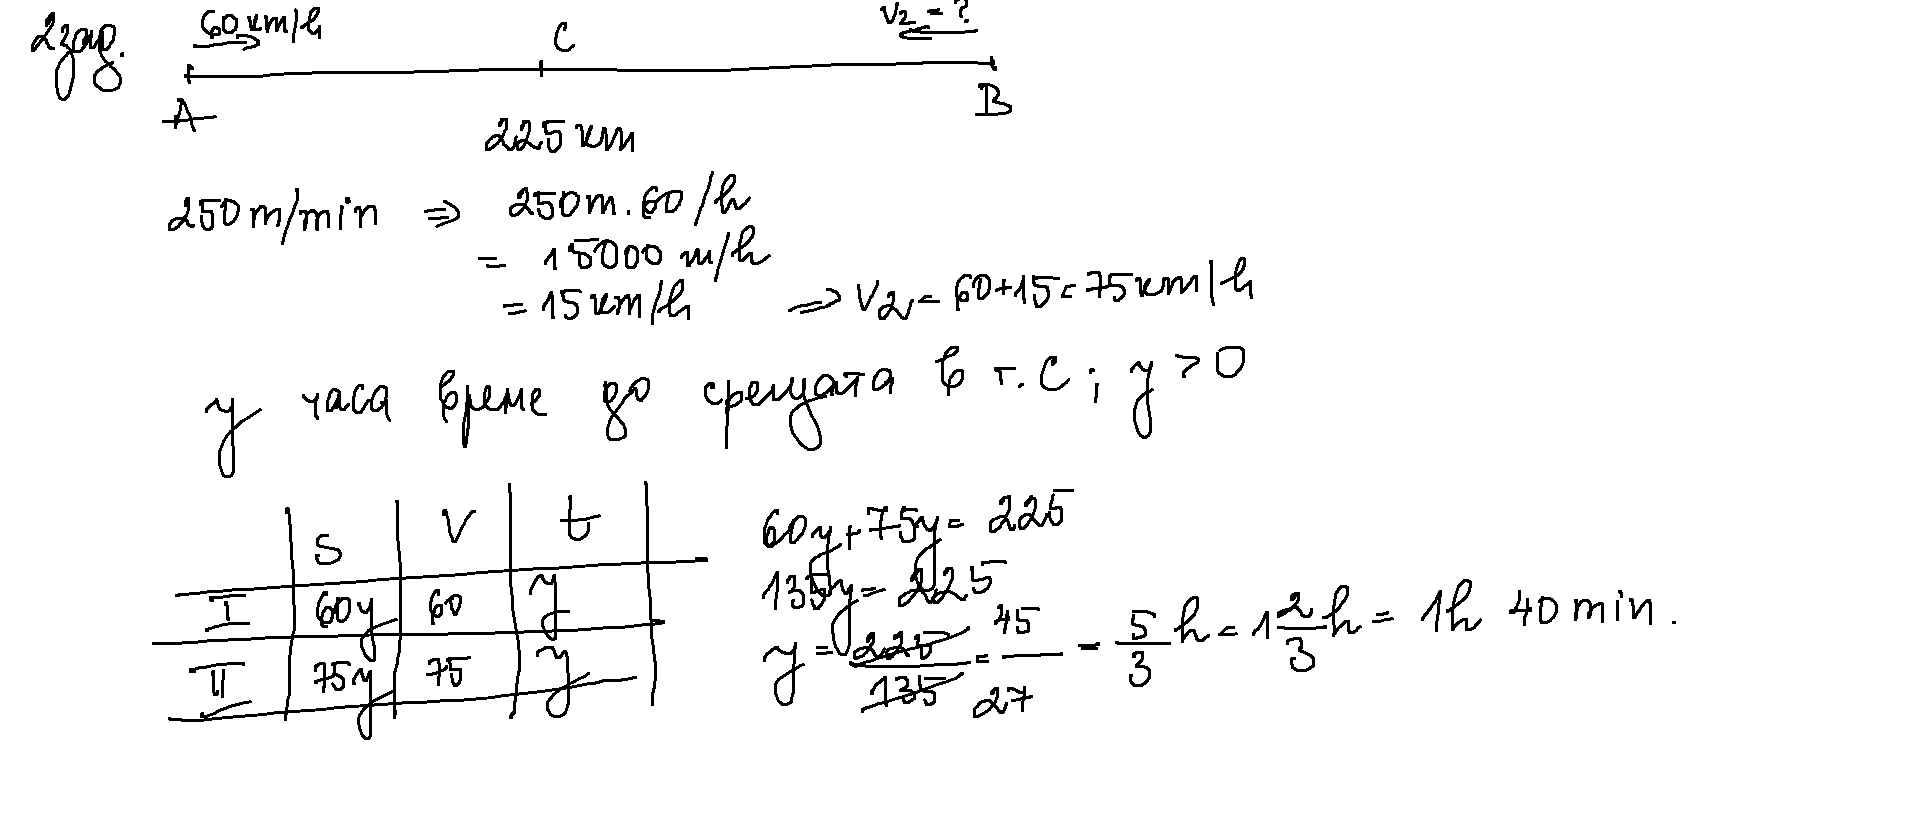 2 зад. 60 km/h C V2 = ?
A B
225 km
250 m/min ⇒ 250m.60/h
= 15000 m/h
= 15 km/h ⇒ V2 = 60+15 = 75 km/h
y часа време до срещата в т. C ; y > 0
S V t
I 60y 60 y
II 75y 75 y
60y + 75y = 225
135y = 225
y = 225/135 = 45/27 = 5/3 h = 1 2/3 h = 1h 40 min.